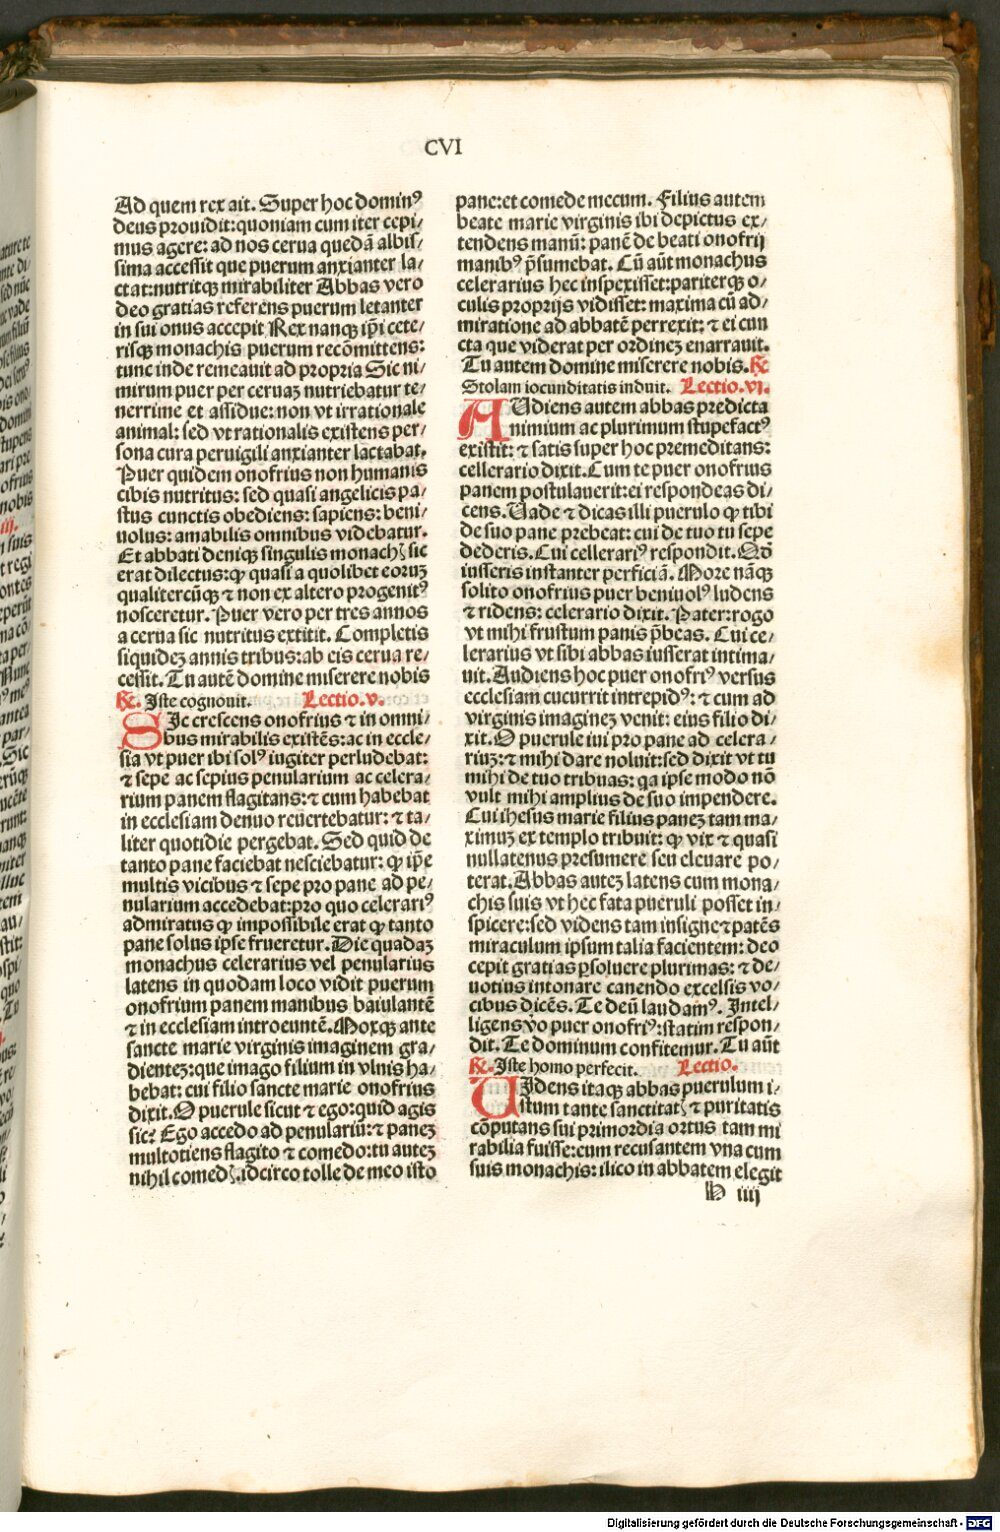 CVI
Ad quem rex ait. Super hoc dominꝰ
deus prouidit: quoniam cum iter cepi/
mus agere: ad nos cerua quedā albis/
sima accessit que puerum anxianter la/
ctat: nutritqꝫ mirabiliter Abbas vero
deo gratias referens puerum letanter
in sui onus accepit Rex nanqꝫ ip̄i cete/
risqꝫ monachis puerum recōmittens:
tunc inde remeauit ad propria Sic ni/
mirum puer per ceruaꝫ nutriebatur te/
nerrime et assidue: non vt irrationale
animal: sed vt rationalis existens per/
sona cura peruigili anxianter lactabat.
Puer quidem onofrius non humanis
cibis nutritus: sed quasi angelicis pa/
stus cunctis obediens: sapiens: beni/
uolus: amabilis omnibus videbatur.
Et abbati deniqꝫ singulis monachꝭ sic
erat dilectus: ꝙ quasi a quolibet eoruꝫ
qualitercūqꝫ ⁊ non ex altero progenitꝰ
nosceretur. Puer vero per tres annos
a cerua sic nutritus extitit. Completis
siquideꝫ annis tribus: ab eis cerua re/
cessit. Tu autē domine miserere nobis
℟. Iste cognouit. Lectio. v.
SIc crescens onofrius ⁊ in omni/
bus mirabilis existēs: ac in eccle/
sia vt puer ibi solꝰ iugiter perludebat:
⁊ sepe ac sepius penularium ac celera/
rium panem flagitans: ⁊ cum habebat
in ecclesiam denuo reuertebatur: ⁊ ta/
liter quotidie pergebat. Sed quid de
tanto pane faciebat nesciebatur: ꝙ ip̄e
multis vicibus ⁊ sepe pro pane ad pe/
nularium accedebat: pro quo celerariꝰ
admiratus ꝙ impossibile erat ꝙ tanto
pane solus ipse frueretur. Die quadaꝫ
monachus celerarius vel penularius
latens in quodam loco vidit puerum
onofrium panem manibus baiulantē
⁊ in ecclesiam introeuntē. Moxqꝫ ante
sancte marie virginis imaginem gra/
dienteꝫ: que imago filium in vlnis ha/
bebat: cui filio sancte marie onofrius
dixit. O puerule sicut ⁊ ego: quid agis
sic? Ego accedo ad penulariū: ⁊ paneꝫ
multotiens flagito ⁊ comedo: tu auteꝫ
nihil comedꝭ. idcirco tolle de meo isto
pane: et comede mecum. Filius autem
beate marie virginis ibi depictus ex/
tendens manū: panē de beati onofrij
manibꝰ p̄sumebat. Cū aūt monachus
celerarius hec inspexisset: pariterqꝫ o/
culis proprijs vidisset: maxima cū ad/
miratione ad abbatē perrexit: ⁊ ei cun
cta que viderat per ordineꝫ enarrauit.
Tu autem domine miserere nobis. ℟
Stolam iocunditatis induit. Lectio. vi.
AUdiens autem abbas predicta
nimium ac plurimum stupefactꝰ
existit: ⁊ satis super hoc premeditans:
cellerario dixit. Cum te puer onofrius
panem postulauerit: ei respondeas di/
cens. Uade ⁊ dicas illi puerulo ꝙ tibi
de suo pane prebeat: cui de tuo tu sepe
dederis. Cui cellerariꝰ respondit. Qd̄
iusseris instanter perficiā. More nāqꝫ
solito onofrius puer beniuolꝰ ludens
⁊ ridens: celerario dixit. Pater: rogo
vt mihi frustum panis p̄beas. Cui ce/
lerarius vt sibi abbas iusserat intima/
uit. Audiens hoc puer onofriꝰ versus
ecclesiam cucurrit intrepidꝰ: ⁊ cum ad
virginis imagineꝫ venit: eius filio di/
xit. O puerule iui pro pane ad celera/
riuꝫ: ⁊ mihi dare noluit: sed dixit vt tu
mihi de tuo tribuas: qa ipse modo nō
vult mihi amplius de suo impendere.
Cui ihesus marie filius paneꝫ tam ma/
ximuꝫ ex templo tribuit: ꝙ vix ⁊ quasi
nullatenus presumere seu eleuare po/
terat. Abbas auteꝫ latens cum mona/
chis suis vt hec fata pueruli posset in/
spicere: sed videns tam insigne ⁊ patēs
miraculum ipsum talia facientem: deo
cepit gratias ꝑsoluere plurimas: ⁊ de/
uotius intonare canendo excelsis vo/
cibus dicēs. Te deū laudamꝰ. Intel/
ligens v̄o puer onofriꝰ: statim respon/
dit. Te dominum confitemur. Tu aūt
℟. Iste homo perfecit. Lectio.
UIdens itaqꝫ abbas puerulum i/
stum tante sanctitatꝭ ⁊ puritatis
cōputans sui primordia ortus tam mi
rabilia fuisse: eum recusantem vna cum
suis monachis: ilico in abbatem elegit
h iiij
Digitalisierung gefördert durch die Deutsche Forschungsgemeinschaft - DFG